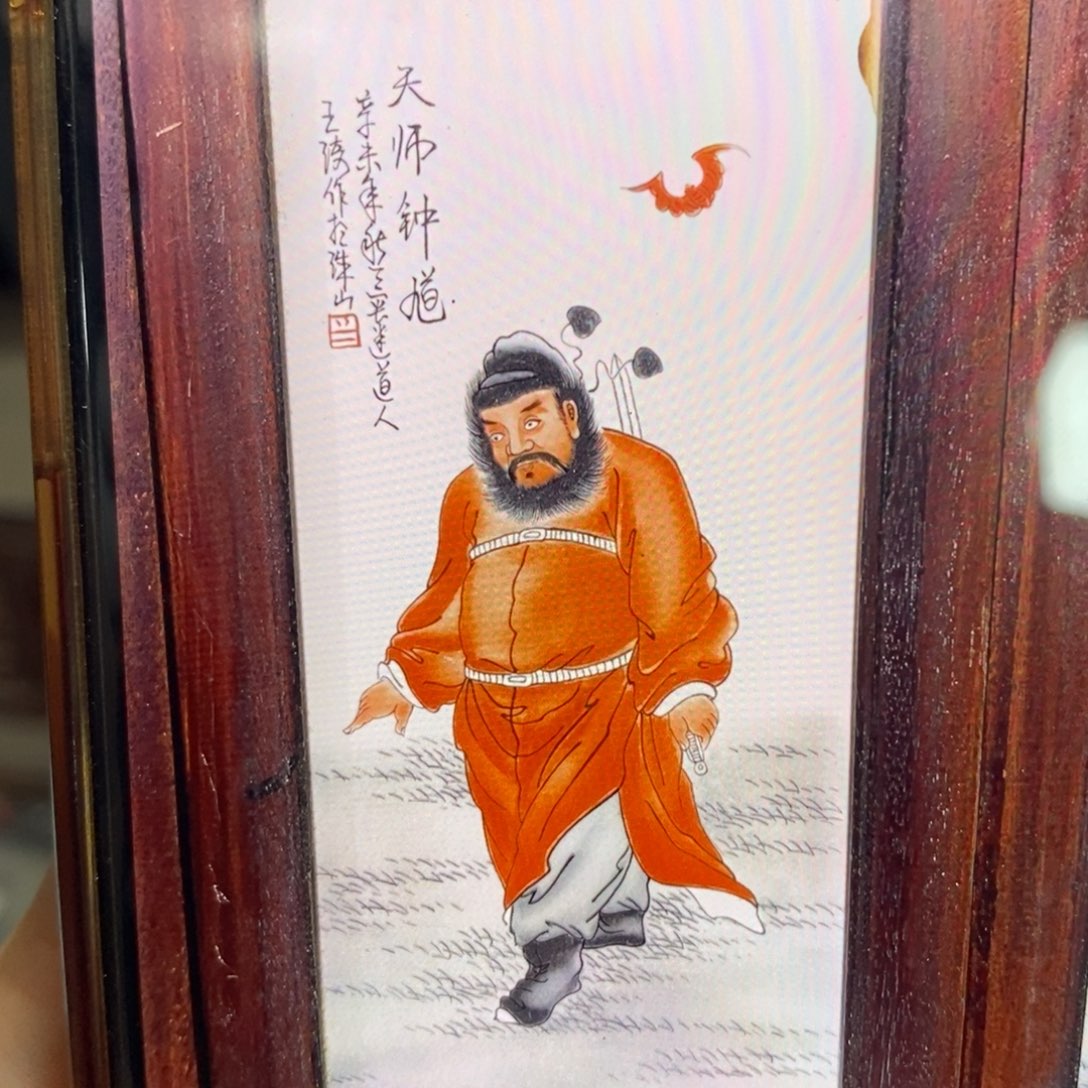 天师钟馗
辛未年秋三迷道人
王琦作於珠山